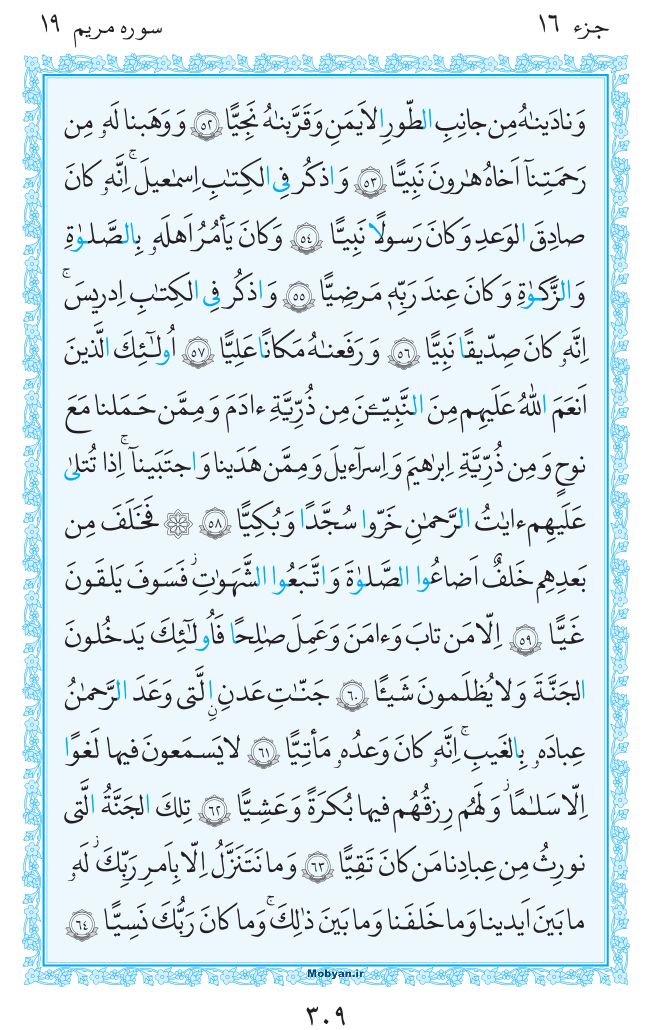 جزء ١٦
سوره مریم ١٩
وَ نادَینٰهُ مِن جانِبِ الطّورِ الاَیمَنِ وَ قَرَّبنٰهُ نَجِیًّا ﴿٥٢﴾ وَ وَهَبنا لَهٗ مِن
رَحمَتِنآ اَخاهُ هٰرونَ نَبِیًّا ﴿٥٣﴾ وَ اذکُر فِی الکِتٰبِ اِسمٰعیلَۚ اِنَّهٗ کانَ
صادِقَ الوَعدِ وَ کانَ رَسولًا نَبِیًّا ﴿٥٤﴾ وَ کانَ یَأمُرُ اَهلَهٗ بِالصَّلوٰةِ
وَ الزَّکوٰةِ وَ کانَ عِندَ رَبِّهٖ مَرضِیًّا ﴿٥٥﴾ وَ اذکُر فِی الکِتٰبِ اِدریسَۚ
اِنَّهٗ کانَ صِدّیقًا نَبِیًّا ﴿٥٦﴾ وَ رَفَعنٰهُ مَکانًا عَلِیًّا ﴿٥٧﴾ اُولٰٓئِکَ الَّذینَ
اَنعَمَ اللهُ عَلَیهِم مِنَ النَّبِیّـٖنَ مِن ذُرِّیَّةِ ءادَمَ وَ مِمَّن حَمَلنا مَعَ
نوحٍ وَ مِن ذُرِّیَّةِ اِبرٰهیمَ وَ اِسرآءیلَ وَ مِمَّن هَدَینا وَ اجتَبَینآۚ اِذا تُتلیٰ
عَلَیهِم ءایٰتُ الرَّحمٰنِ خَرّوا سُجَّدًا وَ بُکِیًّا ﴿٥٨﴾ ۞ فَخَلَفَ مِن
بَعدِهِم خَلفٌ اَضاعُوا الصَّلوٰةَ وَ اتَّبَعُوا الشَّهَوٰتِۖ فَسَوفَ یَلقَونَ
غَیًّا ﴿٥٩﴾ اِلّا مَن تابَ وَ ءامَنَ وَ عَمِلَ صٰلِحًا فَاُولٰٓئِکَ یَدخُلونَ
الجَنَّةَ وَ لا یُظلَمونَ شَیئًا ﴿٦٠﴾ جَنّٰتِ عَدنٍ الَّتی وَعَدَ الرَّحمٰنُ
عِبادَهٗ بِالغَیبِۚ اِنَّهٗ کانَ وَعدُهٗ مَأتِیًّا ﴿٦١﴾ لا یَسمَعونَ فیها لَغوًا
اِلّا سَلٰمًاۖ وَ لَهُم رِزقُهُم فیها بُکرَةً وَ عَشِیًّا ﴿٦٢﴾ تِلکَ الجَنَّةُ الَّتی
نورِثُ مِن عِبادِنا مَن کانَ تَقِیًّا ﴿٦٣﴾ وَ ما نَتَنَزَّلُ اِلّا بِاَمرِ رَبِّکَۖ لَهٗ
ما بَینَ اَیدینا وَ ما خَلفَنا وَ ما بَینَ ذٰلِکَۚ وَ ما کانَ رَبُّکَ نَسِیًّا ﴿٦٤﴾
Mobyan.ir
٣٠٩